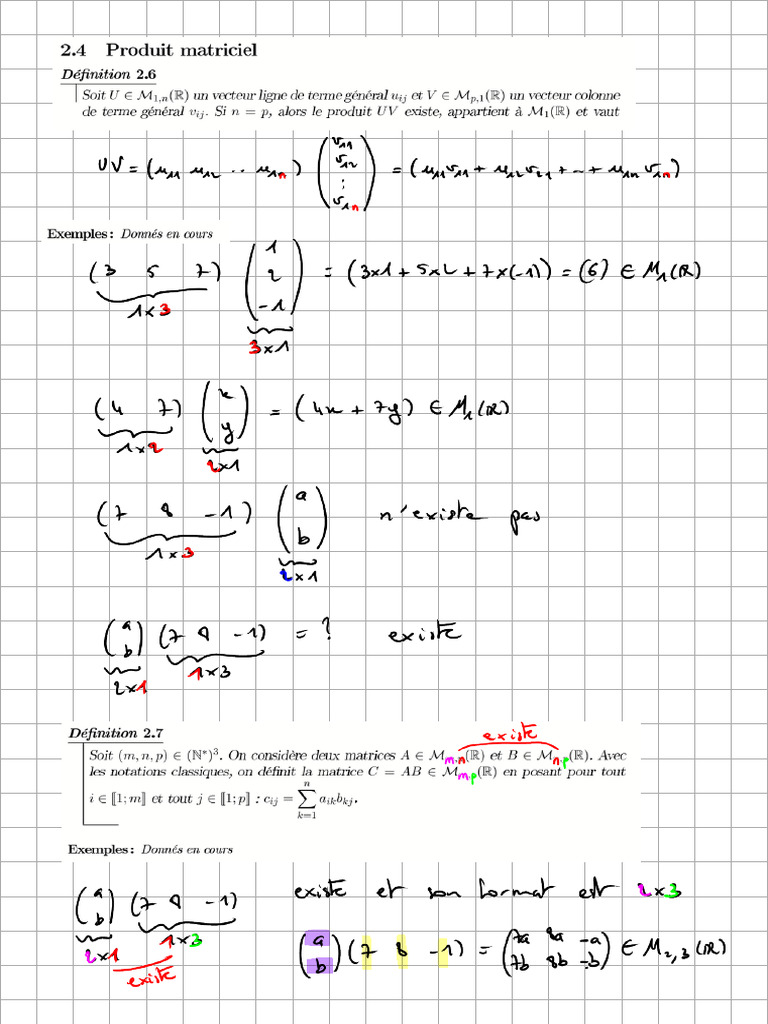 2.4 Produit matriciel
Définition 2.6
Soit U ∈ M₁,ₙ(ℝ) un vecteur ligne de terme général uᵢⱼ et V ∈ Mₚ,₁(ℝ) un vecteur colonne
de terme général vᵢⱼ. Si n = p, alors le produit UV existe, appartient à M₁(ℝ) et vaut
UV = (u₁₁ u₁₂ .. u₁ₙ) (v₁₁ v₁₂ ⋮ v₁ₙ) = (u₁₁v₁₁ + u₁₂v₂₁ + … + u₁ₙ v₁ₙ)
Exemples : Donnés en cours
(3 5 7) (1 2 -1) = (3x1 + 5x2 + 7x(-1)) = (6) ∈ M₁(ℝ)
1x3
3x1
(4 7) (x y) = (4x + 7y) ∈ M₁(ℝ)
1x2 2x1
(7 8 -1) (a b) n'existe pas
1x3 2x1
(a b) (7 8 -1) = ? existe
2x1 1x3
existe
Définition 2.7
Soit (m, n, p) ∈ (ℕ*)³. On considère deux matrices A ∈ M m,n(ℝ) et B ∈ M n,p(ℝ). Avec
les notations classiques, on définit la matrice C = AB ∈ M m,p(ℝ) en posant pour tout
i ∈ ⟦1; m⟧ et tout j ∈ ⟦1; p⟧ : cᵢⱼ = ∑ₖ₌₁ⁿ aᵢₖbₖⱼ.
Exemples : Donnés en cours
(a b) (7 8 -1) existe et son format est 2x3
2x1 1x3
existe
(a b) (7 8 -1) = (7a 8a -a 7b 8b -b) ∈ M₂,₃(ℝ)